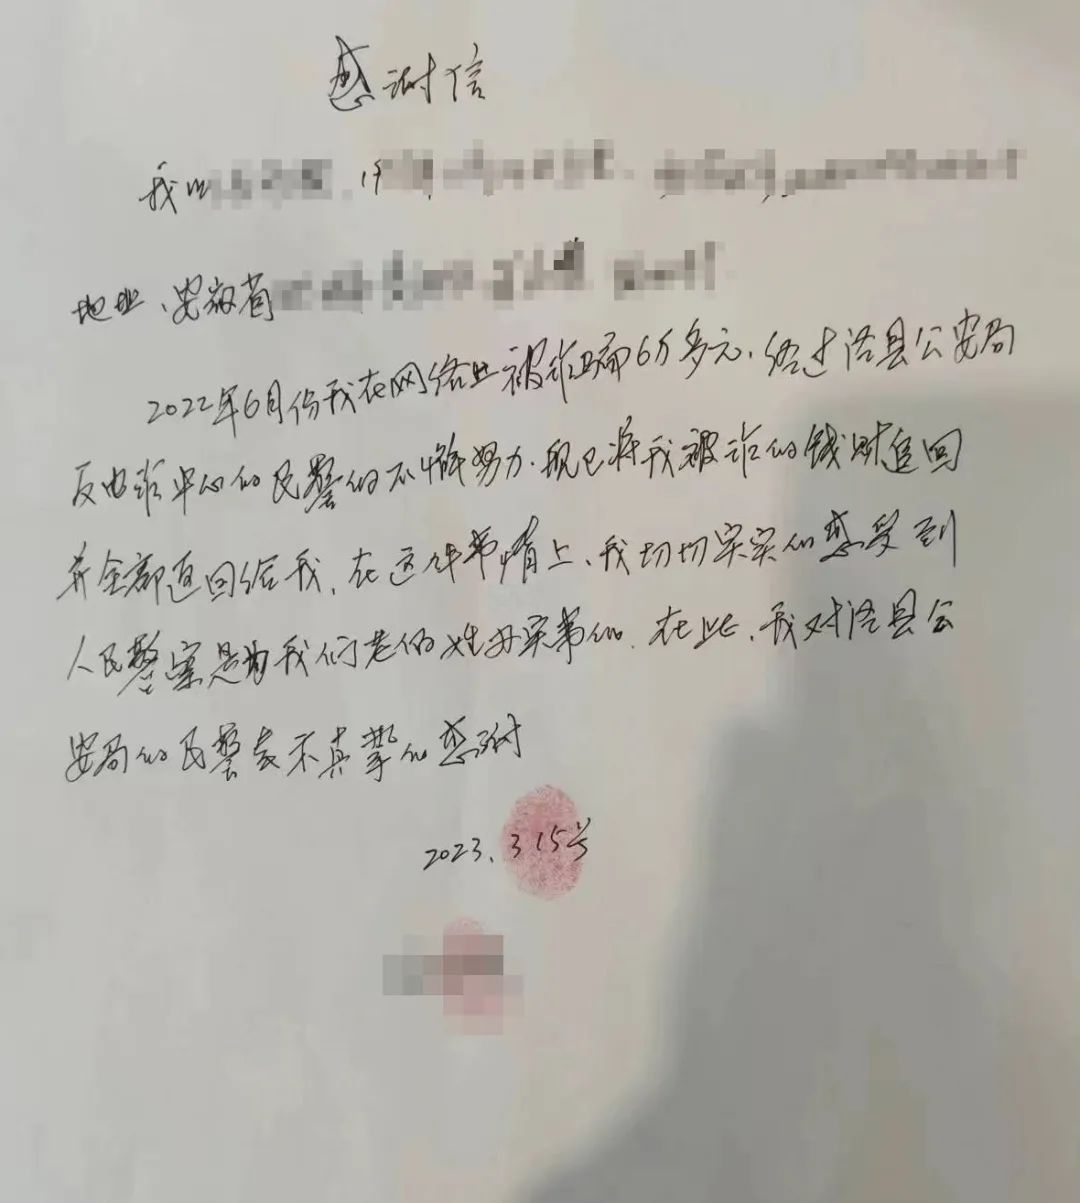 感谢信
我叫 19
地址、安徽省
2022年6月份我在网络上被诈骗6万多元.经过洛县公安局
反电诈中心的民警的不懈努力.现已将我被诈的钱财追回
并全部返回给我.在这件事情上、我切切实实的感受到
人民警察是为我们老百姓办实事的.在此、我对洛县公
安局的民警表示真挚的感谢
2023.3 15号